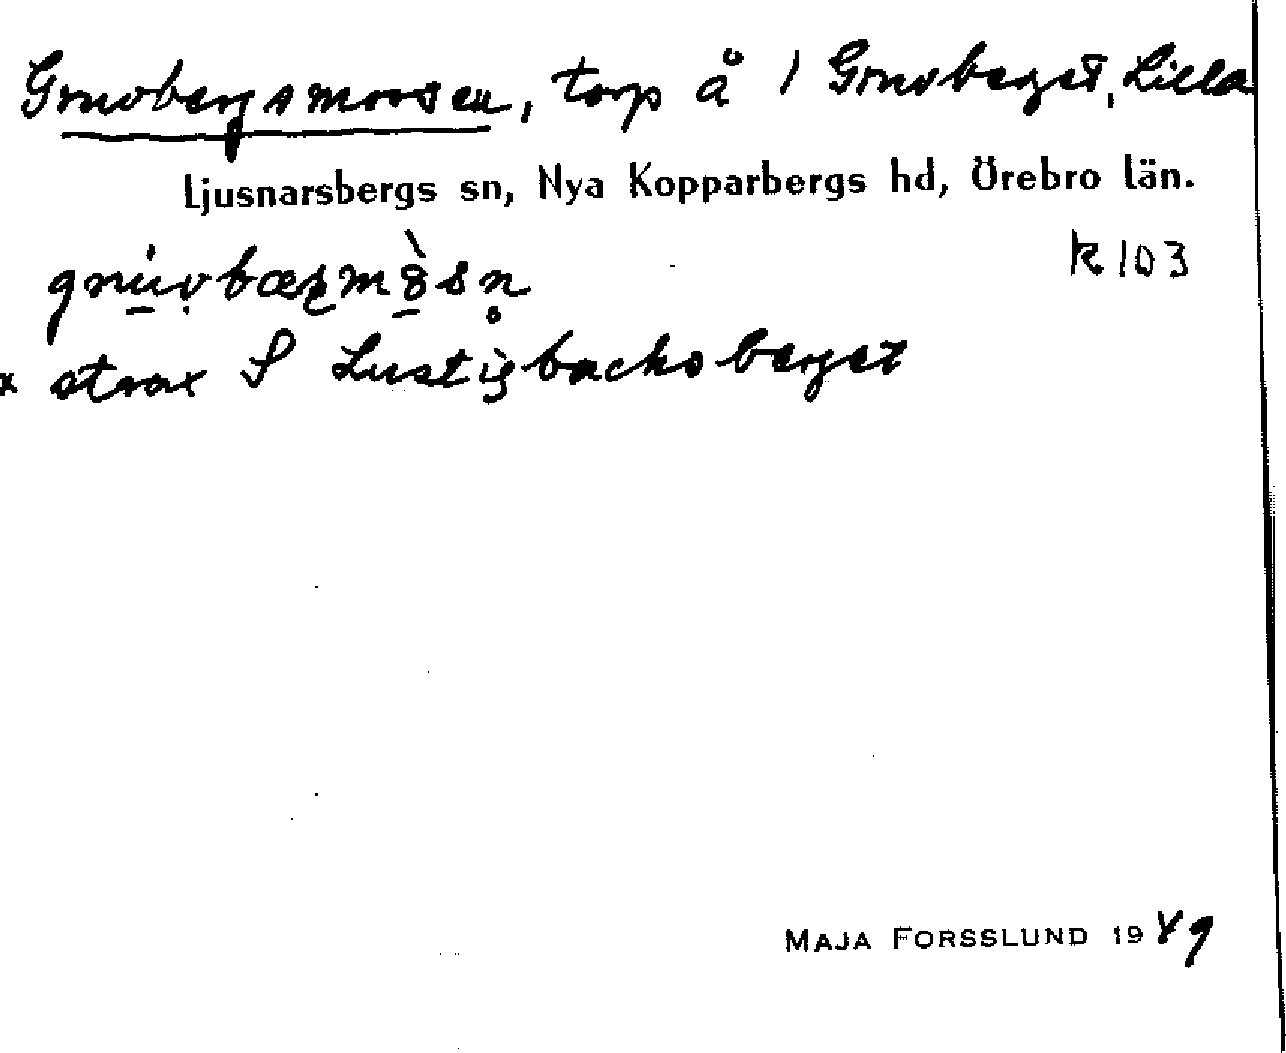 Gruvbergsmossen, torp å / Gruvberget, Lilla
Ljusnarsbergs sn, Nya Kopparbergs hd, Örebro län.
k 103
x strax S Lustigbacksberget
MAJA FORSSLUND 1949